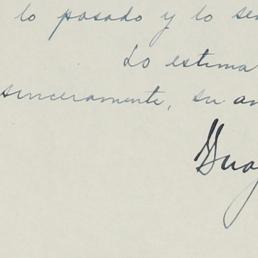 lo pasado y lo se
Lo estima
sinceramente, su a